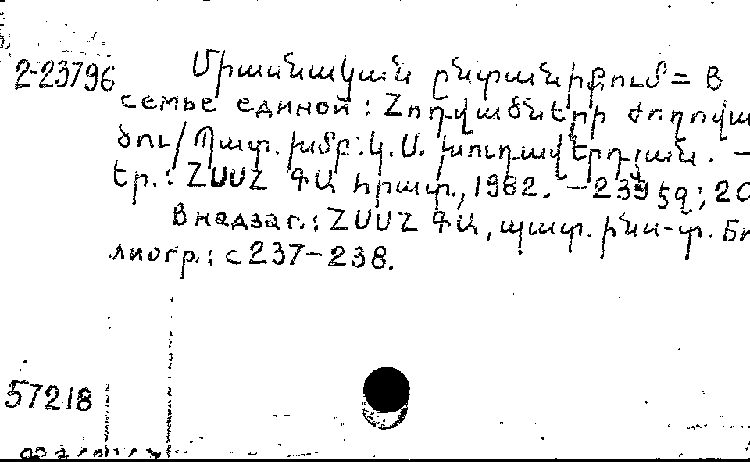 2-23796 Միասնական ընտանիքում = В
семье единой : Հոդվածների ժողովա
ծու/ Պատ. խմբ.՝ Կ. Ս. Խուդավերդյան. –
Եր.: ՀՍՍՀ ԳԱ հրատ., 1982. – 239 էջ; 20
В надзаг.: ՀՍՍՀ ԳԱ, պատ. ինս-տ. Би
лиогр.: с 237–238.
57218